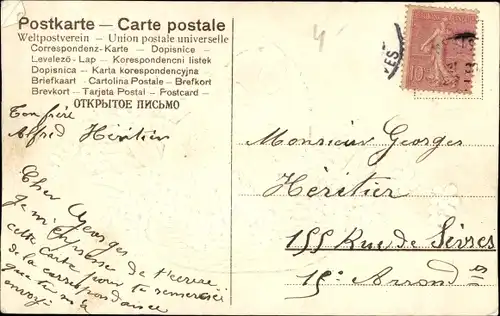 Postkarte — Carte postale
Weltpostverein — Union postale universelle
Correspondenz-Karte — Dopisnice
Levelező-Lap — Korespondencni listek
Dopisnica — Karta korespondencyjna
Briefkaart — Cartolina Postale — Brefkort
Brevkort — Tarjeta Postal — Postcard —
ОТКРЫТОЕ ПИСЬМО
4
10
Ton frère
Alfred Héritier
Cher Georges
Je m'empresse de t'écrire
cette carte pour te remercier
de la correspondance
que tu m'a
envoyé
Monsieur Georges
Héritier
155 Rue de Sèvres
15e Arrond